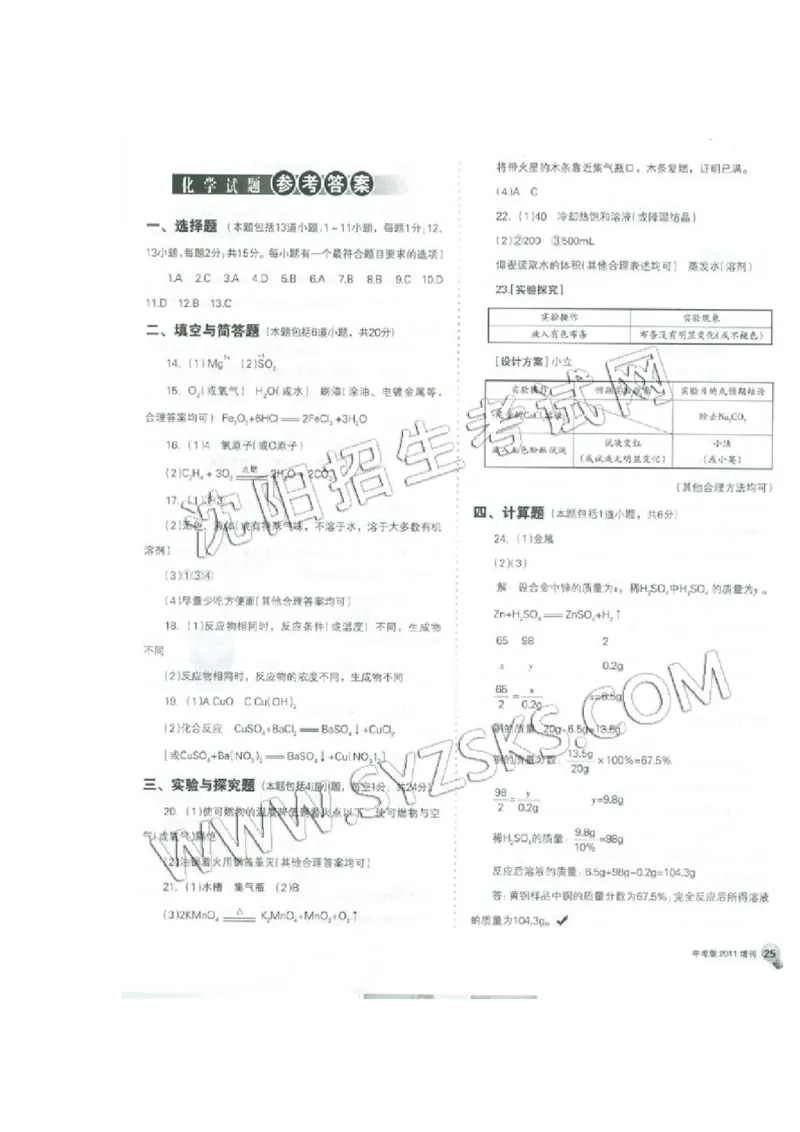 化学试题参考答案
一、选择题 (本题包括13道小题,1~11小题,每题1分;12、
13小题,每题2分;共15分。每小题有一个最符合题目要求的选项)
1.A 2.C 3.A 4.D 5.B 6.A 7.B 8.B 9.C 10.D
11.D 12.B 13.C
二、填空与简答题 (本题包括6道小题,共20分)
14. (1)Mg²⁺ (2)SO₂
15. O₂(或氧气) H₂O(或水) 刷漆(涂油、电镀金属等,
合理答案均可) Fe₂O₃+6HCl══2FeCl₃+3H₂O
16. (1)4 氧原子(或O原子)
(2)C₂H₄+3O₂ 点燃 2H₂O+2CO₂
17.
(2)无色 液体(或有特殊气味,不溶于水,溶于大多数有机
溶剂)
(3)①③④
(4)尽量少吃方便面(其他合理答案均可)
18. (1)反应物相同时,反应条件(或温度)不同,生成物
不同
(2)反应物相同时,反应物的浓度不同,生成物不同
19. (1)A.CuO C.Cu(OH)₂
(2)化合反应 CuSO₄+BaCl₂══BaSO₄↓+CuCl₂
[或CuSO₄+Ba(NO₃)₂══BaSO₄↓+Cu(NO₃)₂]
三、实验与探究题 (本题包括4道小题,每空1分,共24分)
20. (1)使可燃物的温度降低到着火点以下 使可燃物与空
气(或氧气)隔绝
(2)油锅着火用锅盖盖灭(其他合理答案均可)
21. (1)水槽 集气瓶 (2)B
(3)2KMnO₄ △ K₂MnO₄+MnO₂+O₂↑
将带火星的木条靠近集气瓶口,木条复燃,证明已满。
(4)A C
22. (1)40 冷却热饱和溶液(或降温结晶)
(2)②200 ③500mL
仰视读取水的体积(其他合理表述均可) 蒸发水(溶剂)
23.[实验探究]
实验操作 实验现象
放入有色布条 布条没有明显变化(或不褪色)
[设计方案]小立
实验操作 预期实验现象 实验目的或预期结论
除去Na₂CO₃
滴入无色酚酞试液 试液变红 (或试液无明显变化) 小洁 (或小英)
(其他合理方法均可)
四、计算题 (本题包括1道小题,共6分)
24. (1)金属
(2)(3)
解 设合金中锌的质量为x,稀H₂SO₄中H₂SO₄的质量为y。
Zn+H₂SO₄══ZnSO₄+H₂↑
65 98 2
x y 0.2g
65/2=x/0.2g x=6.5g
铜的质量 20g-6.5g=13.5g
铜的质量分数:13.5g/20g×100%=67.5%
98/2=y/0.2g y=9.8g
稀H₂SO₄的质量:9.8g/10%=98g
反应后溶液的质量:6.5g+98g-0.2g=104.3g
答:黄铜样品中铜的质量分数为67.5%;完全反应后所得溶液
的质量为104.3g。
中考版2011增刊 25
沈阳招生考试网
WWW.SYZSKS.COM